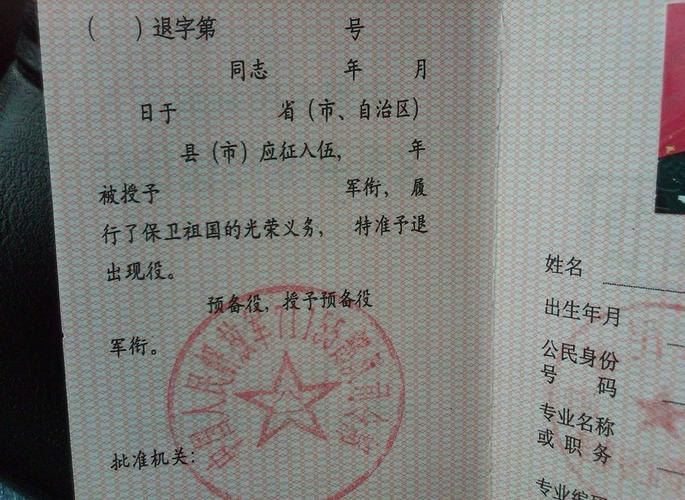 （ ）退字第 号
同志 年 月
日于 省（市、自治区）
县（市）应征入伍， 年
被授予 军衔，履
行了保卫祖国的光荣义务， 特准予退
出现役。
预备役，授予预备役
军衔。
批准机关：
中国人民解放军77135部队司令部
姓名
出生年月
公民身份
号 码
专业名称
或 职 务
专业编码